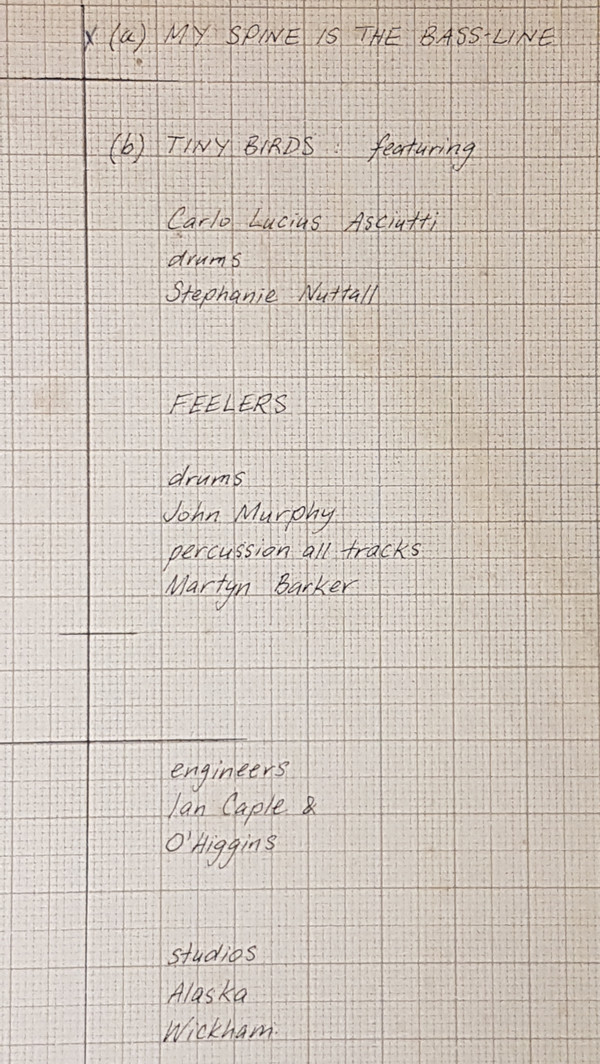 x (a) MY SPINE IS THE BASS-LINE
(b) TINY BIRDS : featuring
Carlo Lucius Asciutti
drums
Stephanie Nuttall
FEELERS
drums
John Murphy
percussion all tracks
Martyn Barker
engineers
Ian Caple &
O'Higgins
studios
Alaska
Wickham.